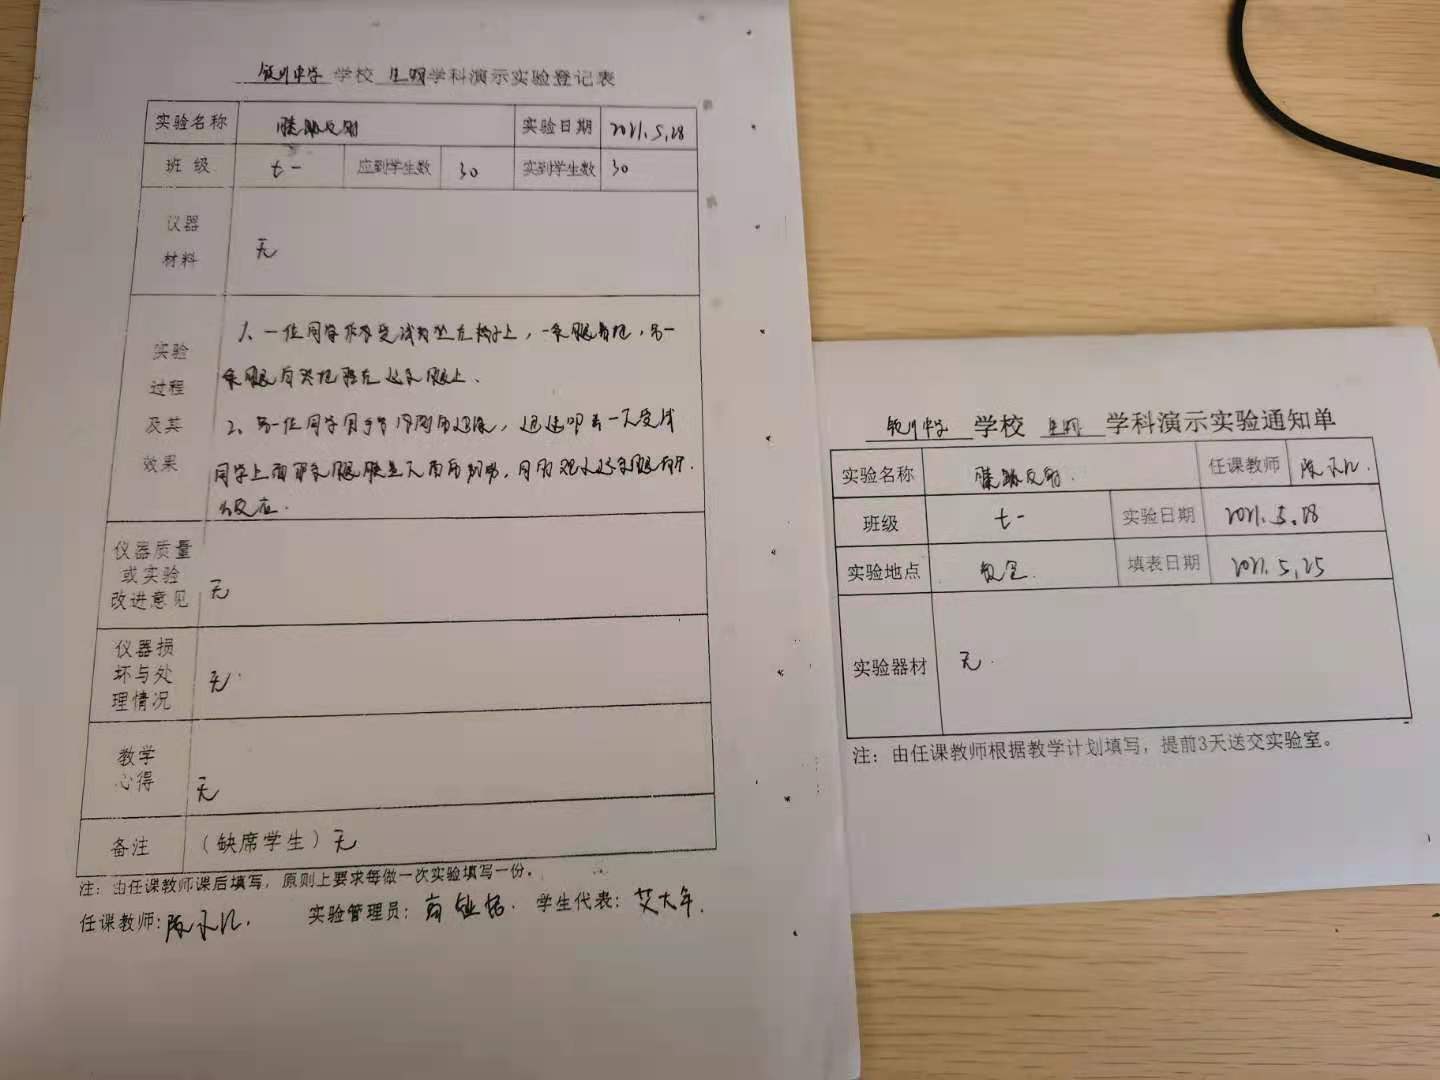 学校 生物学科演示实验登记表
实验名称 膝跳反射 实验日期 2021.5.28
班级 七一 应到学生数 30 实到学生数 30
仪器
材料
无
实验
过程
及其
效果
1、一位同学 受试 坐在椅子上，一条腿着地，另一
条腿自然地搭在这条腿上.
2、另一位同学用手 内侧 迅速，迅速叩击一下受试
同学上面那条腿膝盖下面的韧带，同时观察这条腿有什
么反应.
仪器质量
或实验
改进意见
无
仪器损
坏与处
理情况
无.
教学
心得
无
备注 （缺席学生）无
注：由任课教师课后填写，原则上要求每做一次实验填写一份。
任课教师: 实验管理员： 学生代表：艾大年.
学校 生物 学科演示实验通知单
实验名称 膝跳反射. 任课教师
班级 七一 实验日期 2021.5.28
实验地点 教室. 填表日期 2021.5.25
实验器材 无.
注：由任课教师根据教学计划填写，提前3天送交实验室。